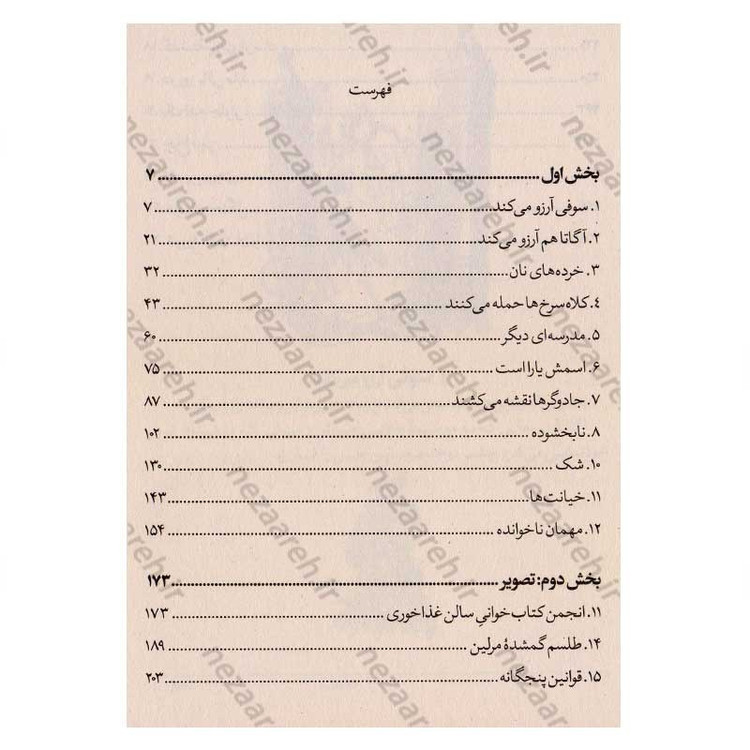 فهرست
بخش اول ... ۷
۱. سوفی آرزو می‌کند ... ۷
۲. آگاتا هم آرزو می‌کند ... ۲۱
۳. خرده‌های نان ... ۳۲
۴. کلاه‌سرخ‌ها حمله می‌کنند ... ۴۳
۵. مدرسه‌ای دیگر ... ۶۰
۶. اسمش یارا است ... ۷۵
۷. جادوگرها نقشه می‌کشند ... ۸۷
۸. نابخشوده ... ۱۰۲
۱۰. شک ... ۱۳۰
۱۱. خیانت‌ها ... ۱۴۳
۱۲. مهمان ناخوانده ... ۱۵۴
بخش دوم: تصویر ... ۱۷۳
۱۱. انجمن کتاب‌خوانیِ سالن غذاخوری ... ۱۷۳
۱۴. طلسم گمشدهٔ مرلین ... ۱۸۹
۱۵. قوانین پنجگانه ... ۲۰۳
nezaareh.ir